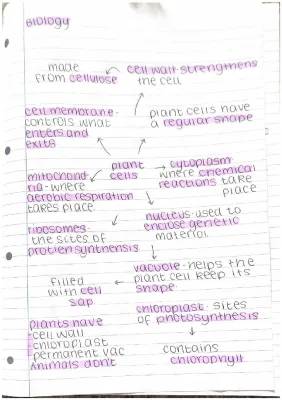 BIOLOGY
made
from cellulose
cell wall-strengthens
the cell
cell membrane-
controls what
enters and
exits
plant cells have
a regular shape
plant
cells
mitochond
ria-where
aerobic respiration
takes place
cytoplasm
where chemical
reactions take
place
ribosomes-
the sites of
protien synthnesis
nucleus-used to
enclose genetic
material
vacuole-helps the
plant cell keep its
shape
filled
with cell
sap
chloroplast-sites
of photosynthesis
contains
chlorophyll
plants have
-cell wall
chloroplast
permanent vac
Animals don't